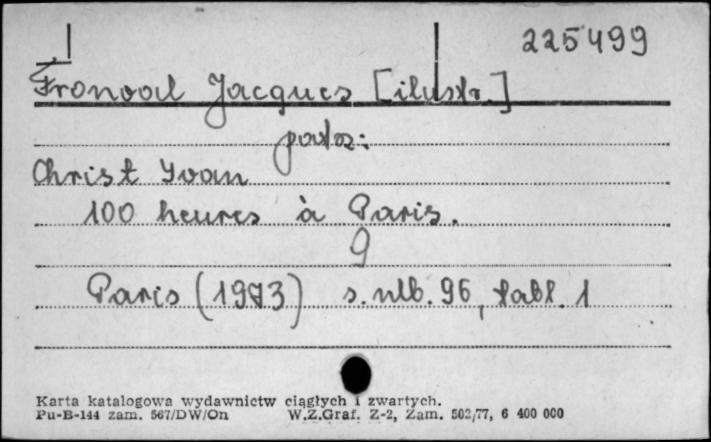 225499
Fronval Jacques [ilustr.]
patrz:
Christ Yvan
100 heures à Paris.
9
Paris (1973) s. nlb. 96, tabl. 1
Karta katalogowa wydawnictw ciągłych i zwartych.
Pu-B-144 zam. 567/DW/On W.Z.Graf. Z-2, Zam. 502/77, 6 400 000